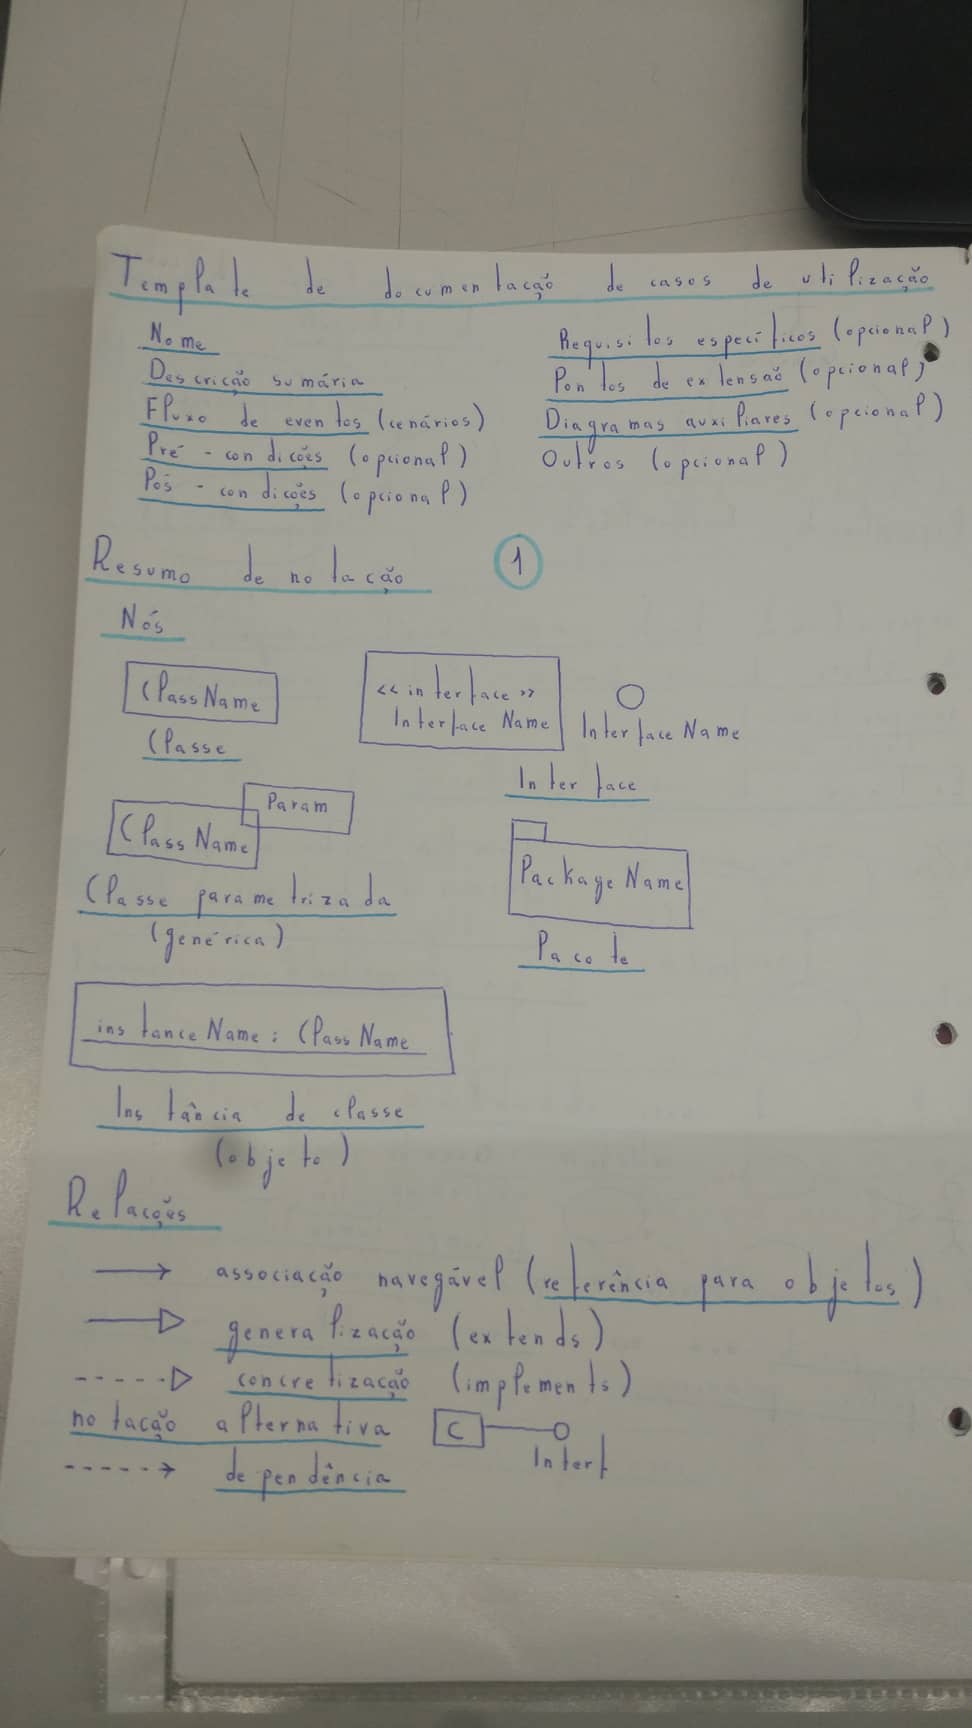 Template de documentação de casos de utilização
Nome
Descrição sumária
Fluxo de eventos (cenários)
Pré-condições (opcional)
Pós-condições (opcional)
Requisitos específicos (opcional)
Pontos de extensão (opcional)
Diagramas auxiliares (opcional)
Outros (opcional)
Resumo de notação 1
Nós
ClassName
Classe
<<interface>>
Interface Name
InterfaceName
Interface
Param
ClassName
Classe parametrizada
(genérica)
PackageName
Pacote
instanceName: ClassName
Instância de classe
(objeto)
Relações
associação navegável (referência para objetos)
generalização (extends)
concretização (implements)
notação alternativa C
Interf
dependência